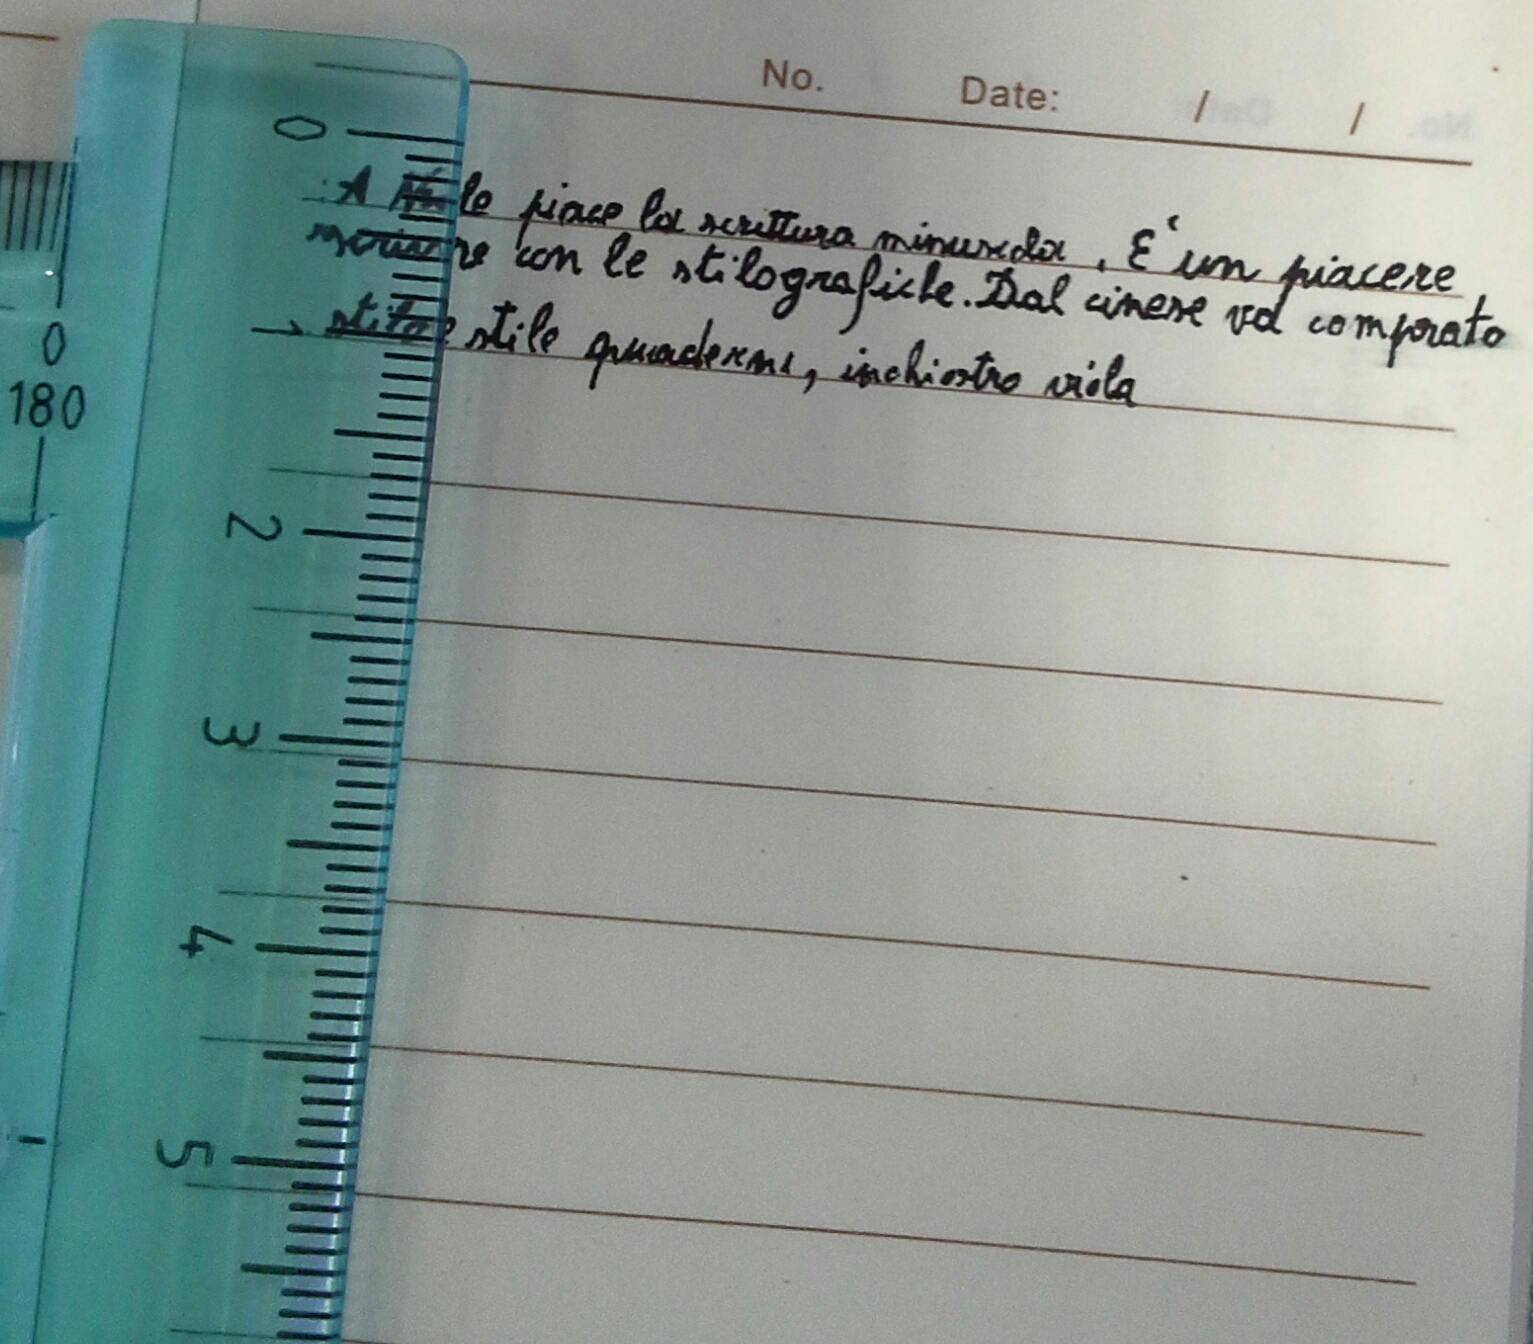 No. Date: / /
0
A le piace la scrittura minuscola. E' un piacere
scrivere con le stilografiche. Dal cinese va comprato
1 stile quaderni, inchiostro viola
0
180
2
3
4
5